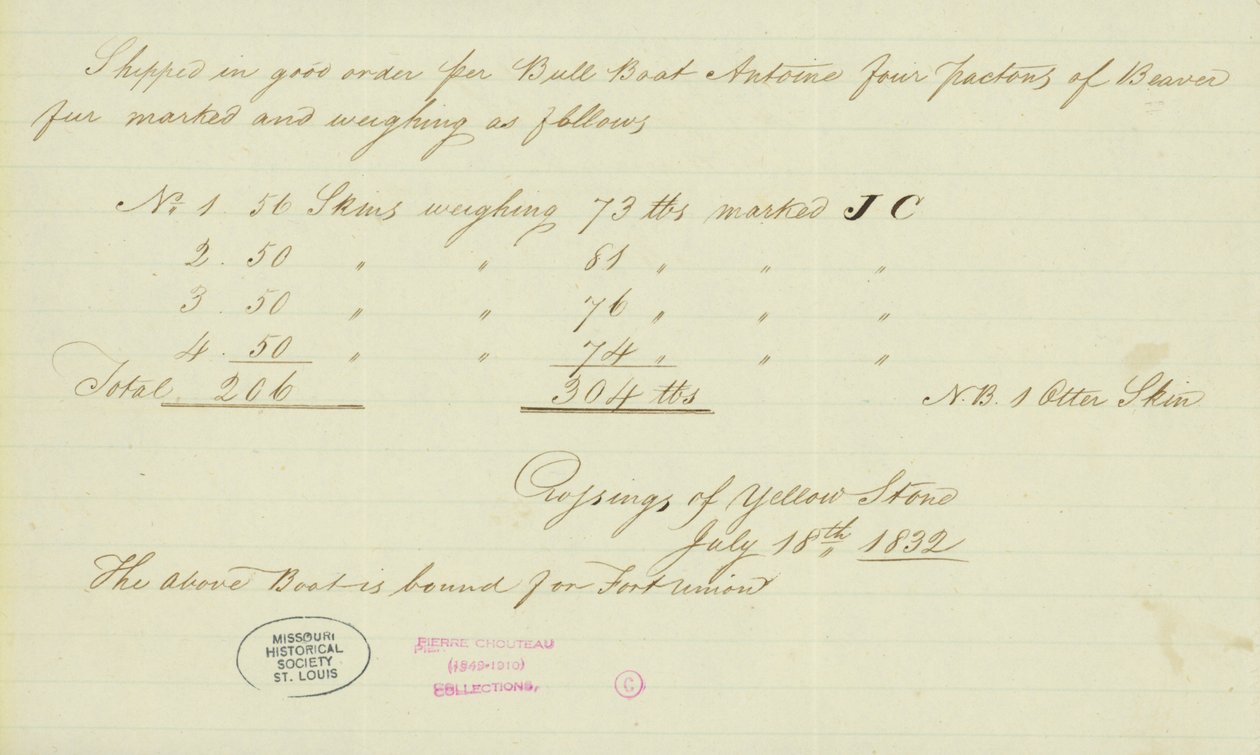 Shipped in good order per Bull Boat Antoine four pactons of Beaver
fur marked and weighing as follows
No. 1. 56 Skins weighing 73 lbs marked J C
2. 50 " " 81 " " "
3. 50 " " 76 " " "
4. 50 " " 74 " " "
Total 206 304 lbs N.B. 1 Otter Skin
Crossings of Yellow Stone
July 18th 1832
The above Boat is bound for Fort Union
MISSOURI
HISTORICAL
SOCIETY
ST. LOUIS
PIERRE CHOUTEAU
(1849-1910)
COLLECTIONS,
C